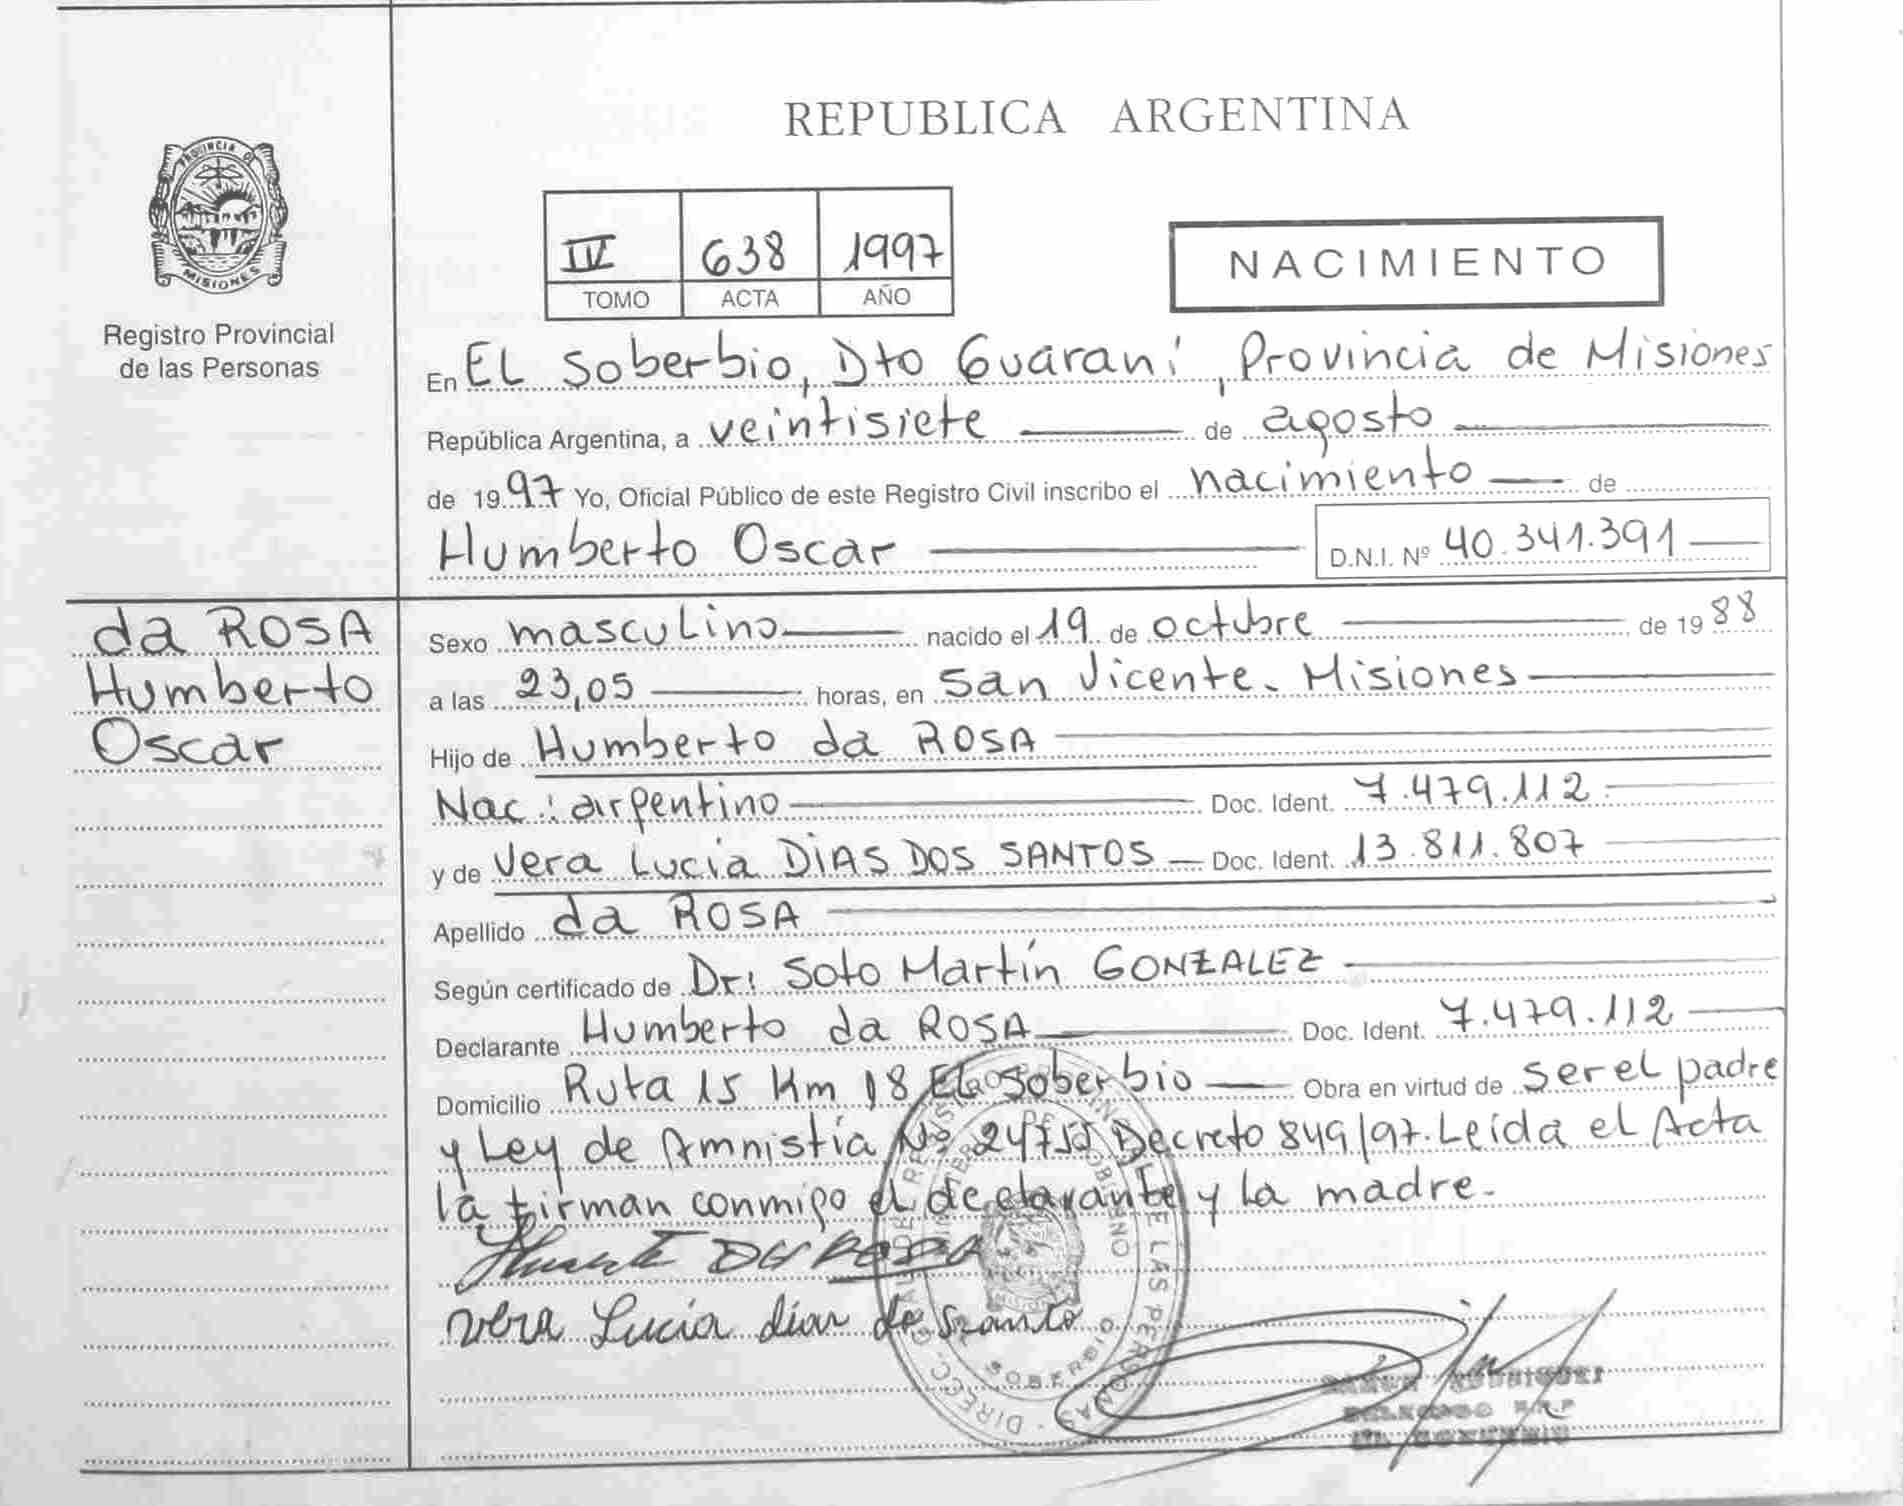 REPUBLICA ARGENTINA
PROVINCIA DE
MISIONES
Registro Provincial
de las Personas
IV 638 1997
TOMO ACTA AÑO
NACIMIENTO
En EL Soberbio, Dto Guaraní, Provincia de Misiones
República Argentina, a veintisiete de agosto
de 1997 Yo, Oficial Público de este Registro Civil inscribo el nacimiento de
Humberto Oscar D.N.I. Nº 40.341.391
da ROSA
Humberto
Oscar
Sexo masculino nacido el 19 de octubre de 1988
a las 23,05 horas, en San Vicente. Misiones
Hijo de Humberto da ROSA
Nac.: argentino Doc. Ident. 7.479.112
y de Vera Lucia DIAS DOS SANTOS Doc. Ident. 13.811.807
Apellido da ROSA
Según certificado de Dr: Soto Martín GONZALEZ
Declarante Humberto da ROSA Doc. Ident. 7.479.112
Domicilio Ruta 15 Km 18 EL Soberbio Obra en virtud de ser el padre
y Ley de Amnistía Nº 24755 Decreto 849/97. Leída el Acta
la firman conmigo el declarante y la madre.
DA ROSA
Vera Lucia dias do santo
DIRECC. GRAL DEL REGISTRO PROVINCIAL DE LAS PERSONAS
MINISTERIO DE GOBIERNO
SOBERBIO